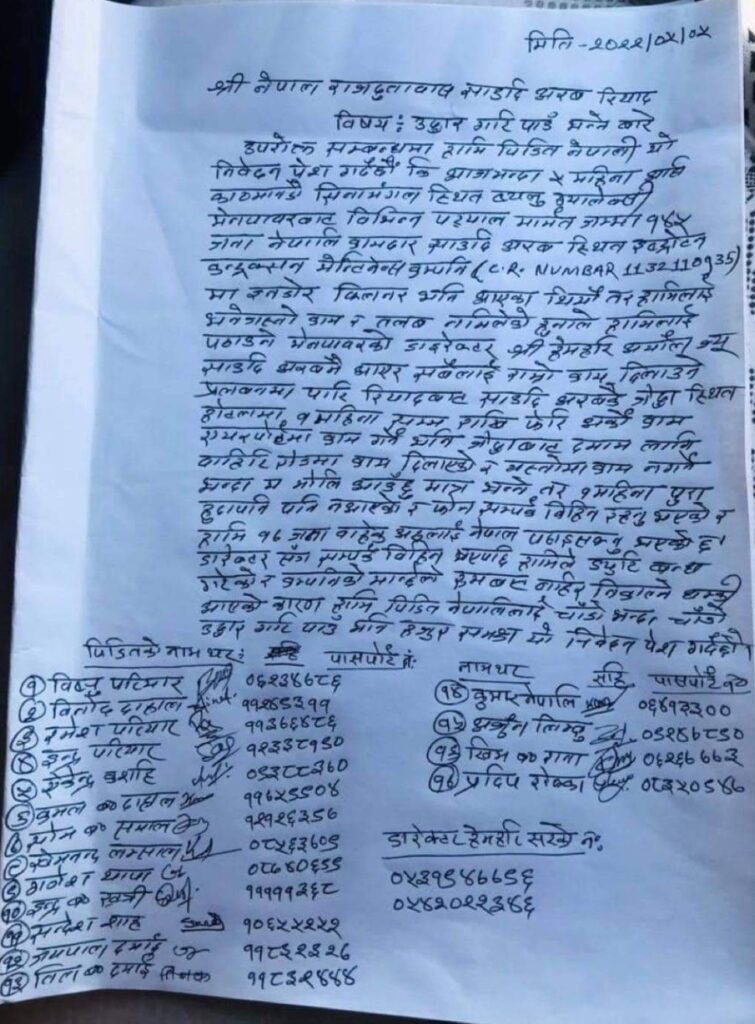 मिति - २०२२/०५/०५
श्री नेपाल राजदुतावास साउदि अरब रियाद
विषय : उद्धार गरि पाउँ भन्ने बारे
उपरोक्त सम्बन्धमा हामि पिडित नेपाली यो
निवेदन पेश गर्दछौं कि आजभन्दा ५ महिना अघि
काठमाण्डौ सिनामंगल स्थित
मेनपावरबाट विभिन्न मार्फत जम्मा १४५
जना नेपालि कामदार साउदि अरब स्थित
कन्ट्रक्सन मेन्टिनेन्स कम्पनि (C.R. NUMBAR 1132110935)
मा इनडोर क्लिनर भनि आएका थियौं तर हामिलाई
भनेजस्तो काम र तलब नमिलेको हुनाले हामिलाई
पठाउने मेनपावरको डाइरेक्टर श्री हेमहरि ज्यू
साउदि अरबमै आएर सबैलाई राम्रो काम दिलाउने
प्रलोभनमा पारि रियादबाट साउदि अरबकै जेद्दा स्थित
होटलमा १ महिना सम्म राखि फेरि अर्को काम
एयरपोर्टमा काम गर्ने भनि जेद्दाबाट दमाम लागि
काम दिलाएको र त्यस्तोमा काम नगर्ने
भन्दा म भोलि आउँछु मात्र भन्ने तर १ महिना पुरा
हुदापनि पनि नआएको र फोन सम्पर्क विहिन रहनु भएको र
हामि १७ जना बाहेक अरुलाई नेपाल पठाइसक्नु भएको छ।
डारेक्टर सँग सम्पर्क विहिन भएपछि हामिले ड्युटि बन्ध
गरेको र कम्पनिको मान्छेले रुमबाट बाहिर निकाल्ने धम्की
आएको कारण हामि पिडित नेपालिलाई चाँडो भन्दा चाँडो
उद्धार गरि पाउ भनि हजुर समक्ष यो निवेदन पेश गर्दछौं।
पिडितको नाम थर : पासपोर्ट नं.
१ विष्नु परियार ०६२३४७८६
२ विनोद दाहाल ११२४५३११
३ रमेश परियार ११३६६४८६
४ इन्दु परियार १२३३८१५०
५ ०५३८८३६०
६ कुमल ब० दाहाल ११६२५५०४
७ १२१२६३५६
८ खेमनाथ लम्साल ०८५६३६०५
९ गणेश थापा ०८६४०६५५
१० इन्द्र ब० खत्री १११११३६८
११ सन्देश शाह १०६५५२५२
१२ जयपाल दमाई ११८३२३२७
१३ तिल ब० दमाई तिलक ११८३२४४४
नामथर सहि पासपोर्ट न०
१४ कुमार नेपालि ०६४१३३००
१५ अर्जुन लिम्बु ०५२४७८५०
१६ खिम ब० राना ०६२६७६६३
१७ प्रदिप रोक्का ०८३२०५४७
डारेक्टर हेमहरि सरको नं.
०५३१५४७६५६
०५४२०२२३४६